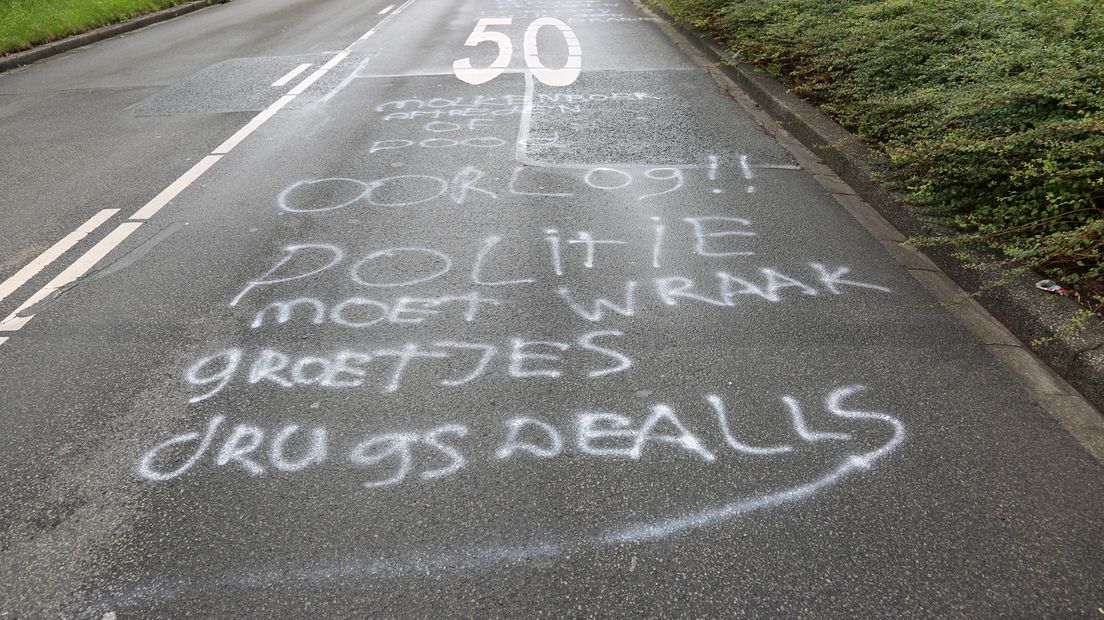 50
AFTREDEN
OF
DOOD
OORLOg!!
POLitiE
MOET WRAAK
gROETJES
dRUgS DEALLS